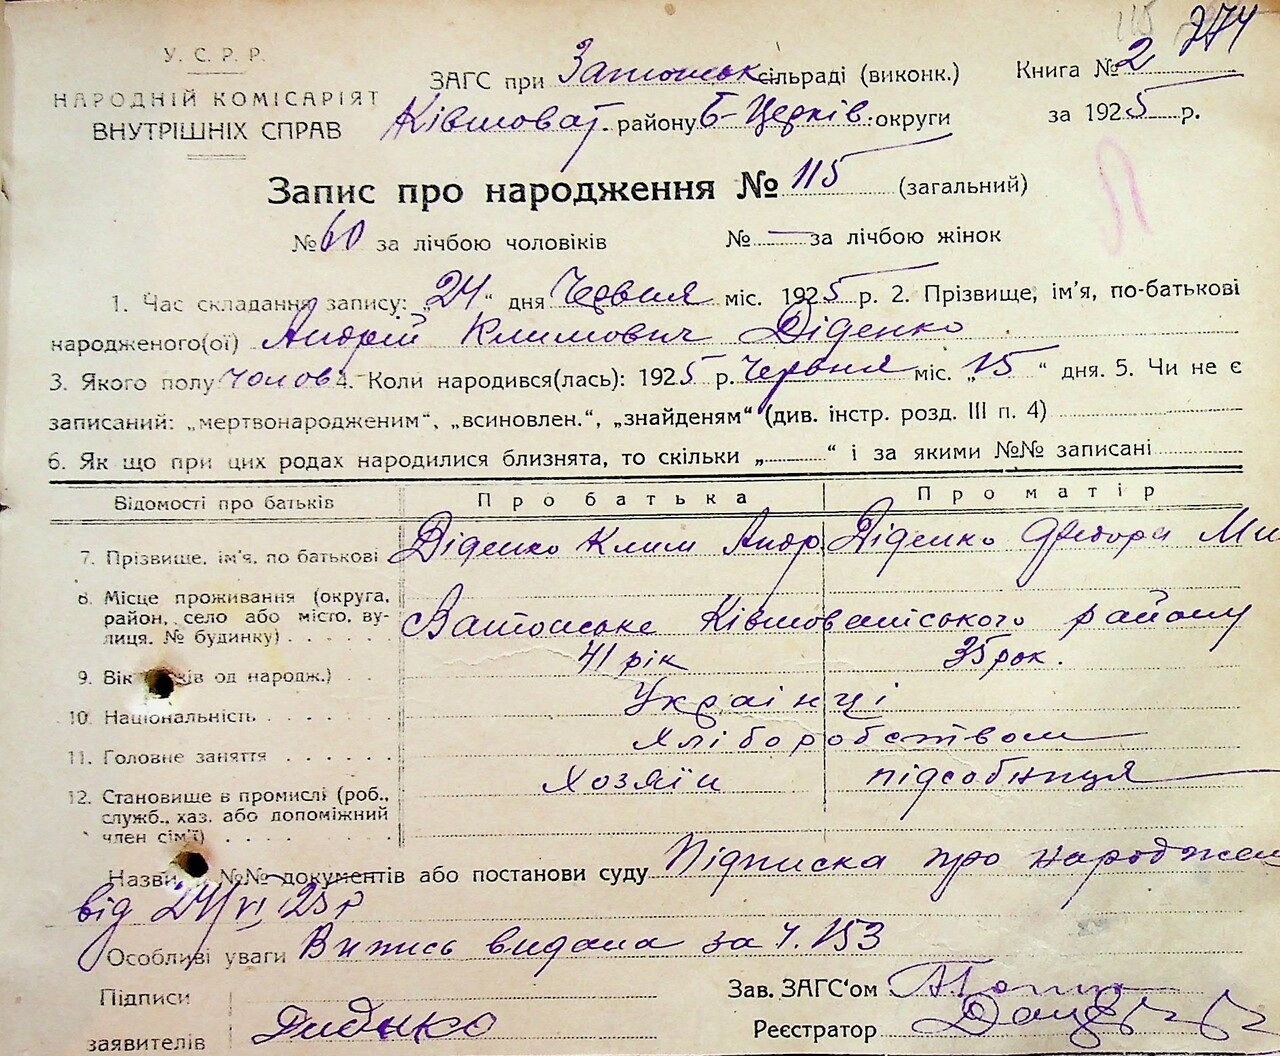 115 274
У. С. Р. Р.
НАРОДНІЙ КОМІСАРІЯТ
ВНУТРІШНІХ СПРАВ
ЗАГС при Затонськ сільраді (виконк.) Книга № 2
Ківшоват. району Б-Церків. округи за 1925 р.
Запис про народження № 115 (загальний)
№ 60 за лічбою чоловіків № — за лічбою жінок
1. Час складання запису: „24“ дня Червня міс. 1925 р. 2. Прізвище, ім'я, по-батькові
народженого(ої) Андрій Климович Діденко
3. Якого полу чолов 4. Коли народився(лась): 1925 р. Червня міс. „15“ дня. 5. Чи не є
записаний: „мертвонародженим“, „всиновлен.“, „знайденям“ (див. інстр. розд. III п. 4)
6. Як що при цих родах народилися близнята, то скільки „ “ і за якими №№ записані
Відомості про батьків Про батька Про матір
7. Прізвище, ім'я, по батькові Діденко Клим Андр Діденко Федора Ми
8. Місце проживання (округа, район, село або місто, ву-
лиця. № будинку) Затонське Ківшоватського району
9. Вік од народж.) 41 рік 35 рок.
10. Національність Українці
11. Головне заняття Хліборобством
12. Становище в промислі (роб., Хозяїн підсобниця
служб., хаз. або допоміжний
член сім'ї)
Назви №№ документів або постанови суду Підписка про народжен
від 24/VI 25 р
Особливі уваги Випись видана за ч. 153
Підписи Зав. ЗАГС'ом
заявителів Диденко Реєстратор